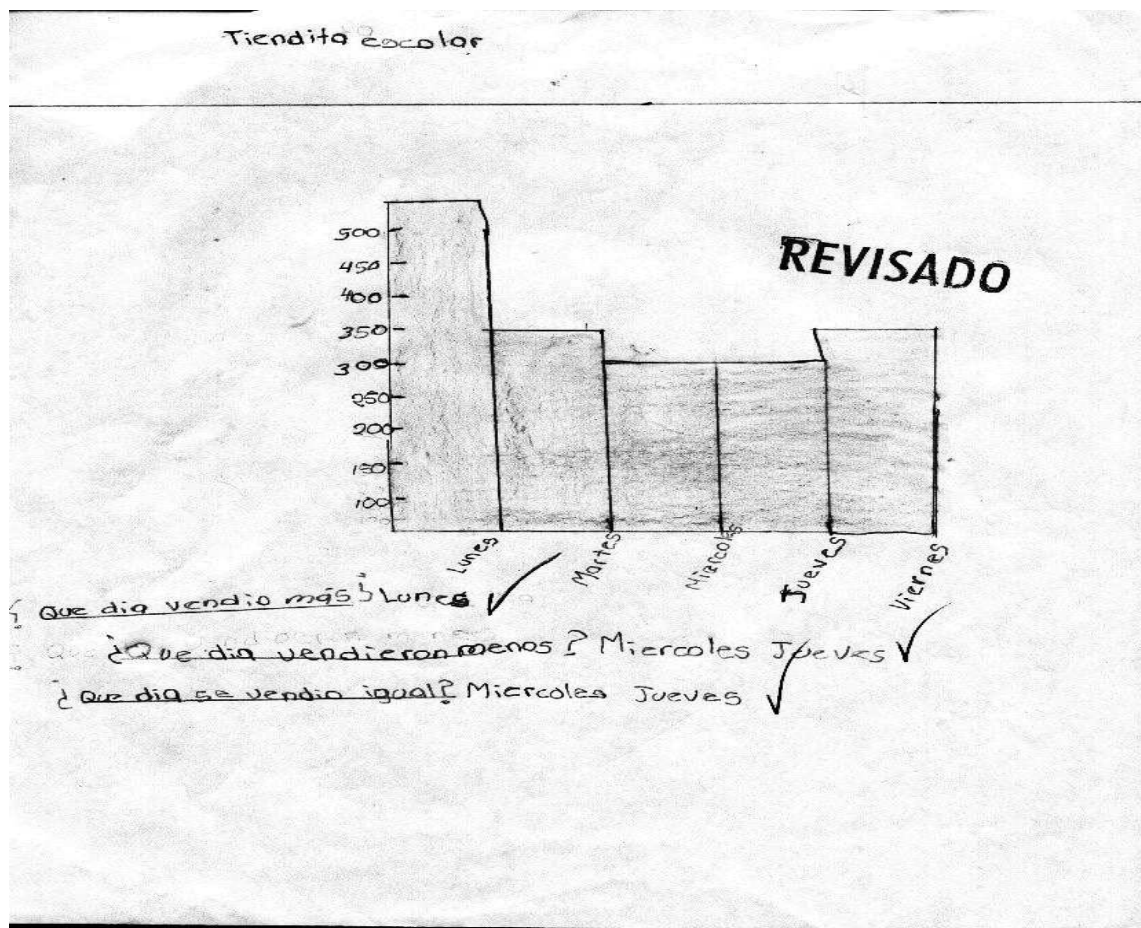 Tiendita escolar
500
REVISADO
450
400
350
300
250
200
150
100
Lunes
Martes
Miercoles
Jueves
Viernes
¿ Que dia vendio más? Lunes
¿Que dia vendieron menos? Miercoles Jueves
¿ Que dia se vendio igual? Miercoles Jueves